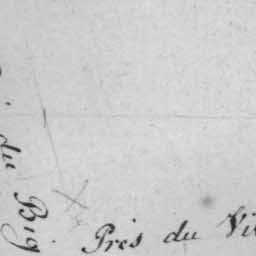 du Big
Près du Vi